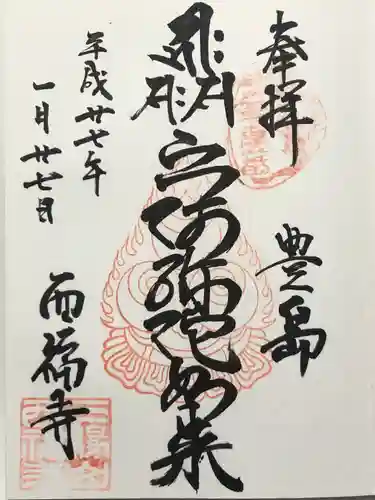 奉拝
豊島
六阿弥陀如来
平成廿七年
一月廿七日
西福寺